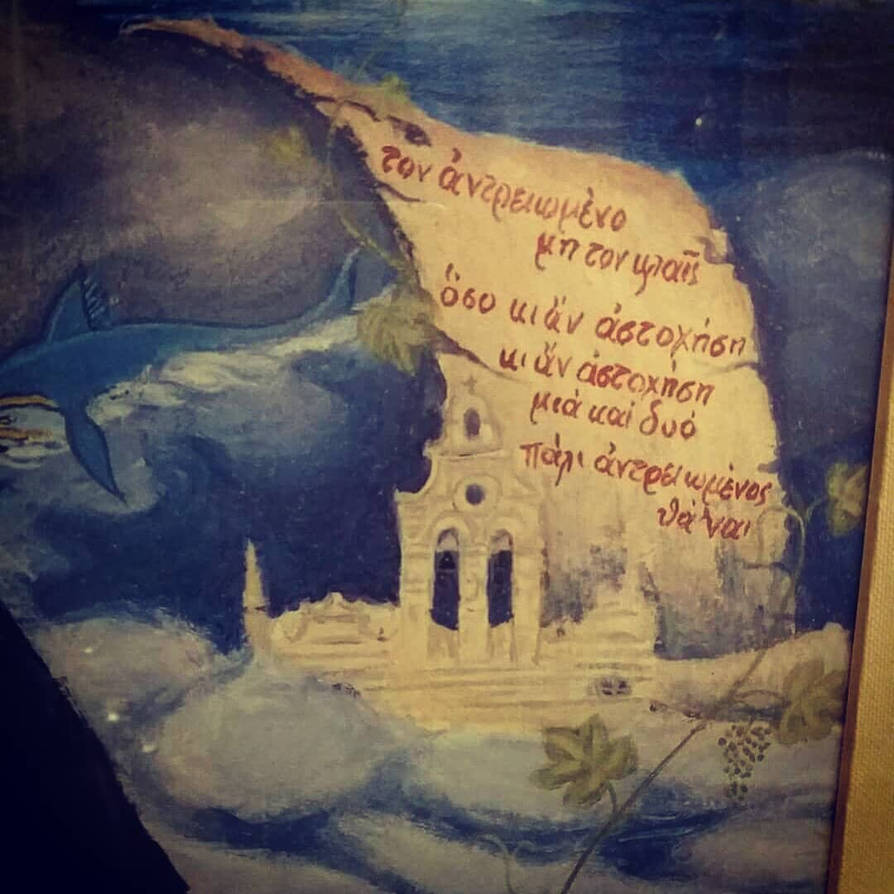 τον ἀντρειωμένο
μη τον κλαῖς
ὅσο κι ἄν ἀστοχήση
κι ἄν ἀστοχήση
μιά και δυό
πάλι ἀντρειωμένος
θά 'ναι